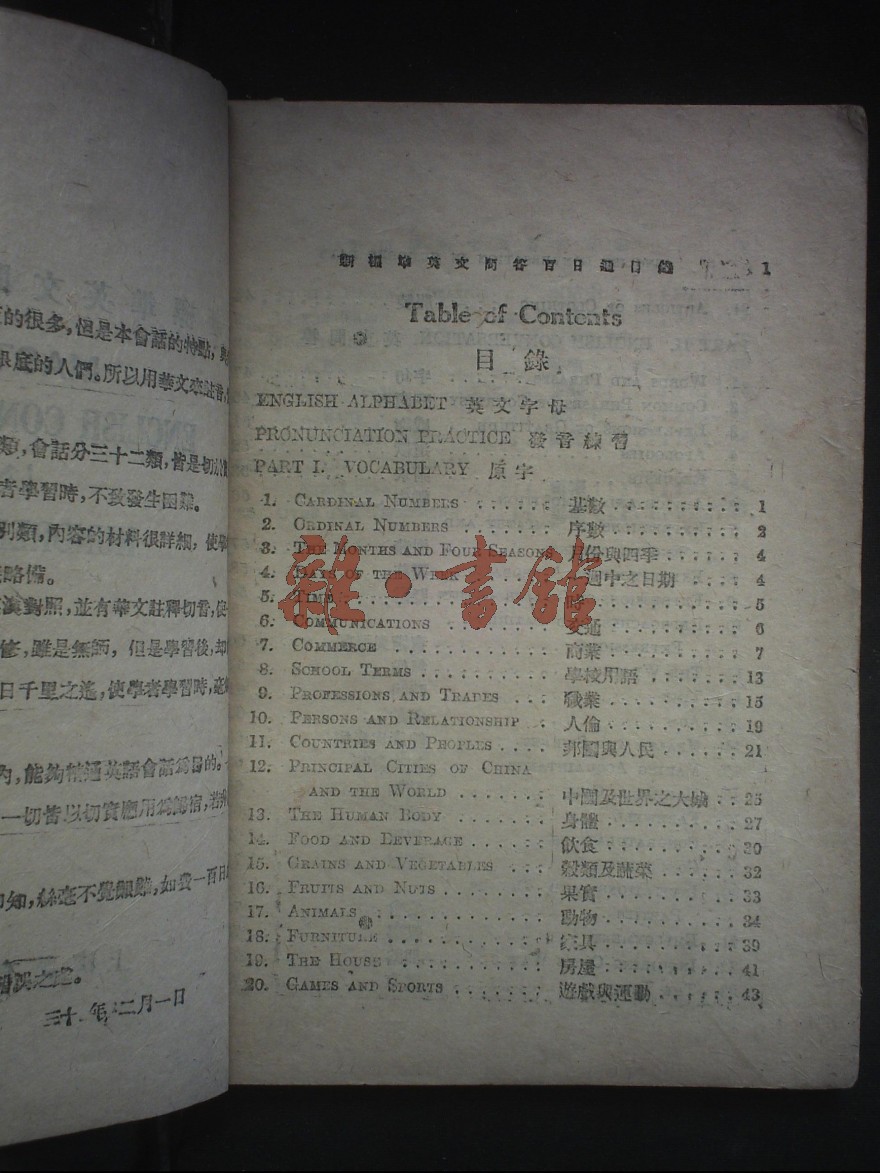 的很多,但是本會話的特點,
眼底的人們。所以用華文來註音,
類,會話分三十二類,皆是切
者學習時,不致發生困難。
別類,內容的材料很詳細,使
略備。
漢對照,並有華文註釋切音,使
修,雖是無師,但是學習後,却
日千里之遙,使學者學習時,毫
內,能夠精通英語會話爲目的。
一切皆以切實應用爲歸宿,若
知,絲毫不覺困難,如費一百日
誤之處。
年 二月一日
新標準英文問答百日通目錄 1
Table of Contents
目錄
ENGLISH ALPHABET 英文字母
PRONUNCIATION PRACTICE 發音練習
PART I. VOCABULARY 原字
1. CARDINAL NUMBERS 基數 1
2. ORDINAL NUMBERS 序數 2
3. THE MONTHS AND FOUR SEASONS 月份與四季 4
4. DAYS OF THE WEEK 週中之日期 4
5. TIME 時 5
6. COMMUNICATIONS 交通 6
7. COMMERCE 商業 7
8. SCHOOL TERMS 學校用語 13
9. PROFESSIONS AND TRADES 職業 15
10. PERSONS AND RELATIONSHIP 人倫 19
11. COUNTRIES AND PEOPLES 邦國與人民 21
12. PRINCIPAL CITIES OF CHINA
AND THE WORLD 中國及世界之大城 25
13. THE HUMAN BODY 身體 27
14. FOOD AND BEVERAGE 飲食 30
15. GRAINS AND VEGETABLES 穀類及蔬菜 32
16. FRUITS AND NUTS 果實 33
17. ANIMALS 動物 34
18. FURNITURE 家具 39
19. THE HOUSE 房屋 41
20. GAMES AND SPORTS 遊戲與運動 43
雜·書館